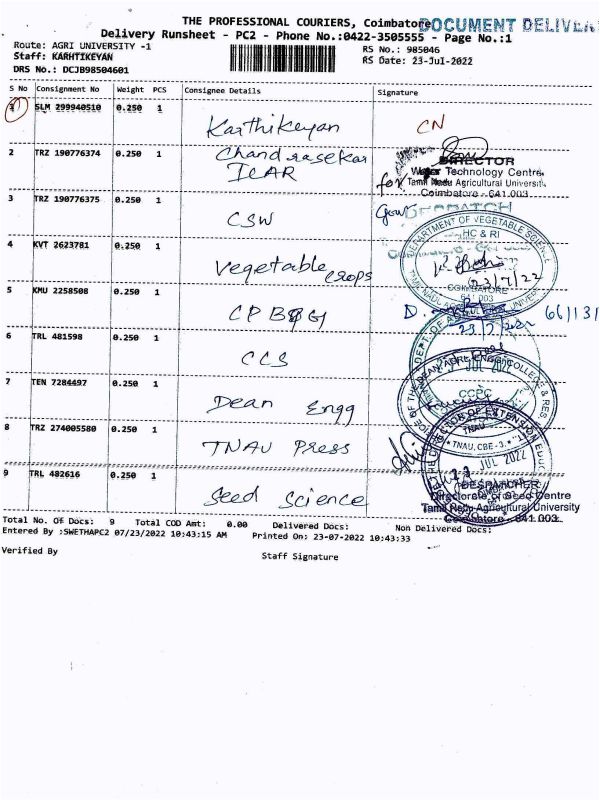 THE PROFESSIONAL COURIERS, Coimbatore
DOCUMENT DELIVER
Delivery Runsheet - PC2 - Phone No.:0422-3505555 - Page No.:1
Route: AGRI UNIVERSITY -1
RS No.: 985046
Staff: KARHTIKEYAN
RS Date: 23-Jul-2022
DRS No.: DCJB98504601
S No Consignment No Weight PCS Consignee Details Signature
1 SLM 299940510 0.250 1 Karthikeyan CN
2 TRZ 190776374 0.250 1 Chandrasekar
ICAR
DIRECTOR
Water Technology Centre
for Tamil Nadu Agricultural University
Coimbatore - 641 003
3 TRZ 190776375 0.250 1 CSW
DEPARTMENT OF VEGETABLE SCIENCE
HC & RI
4 KVT 2623781 0.250 1 Vegetable crops
23/7/22
COIMBATORE
641 003
5 KMU 2258508 0.250 1 CPB&G
23/7/2022
6 TRL 481598 0.250 1 CCS
7 TEN 7284497 0.250 1 Dean Engg
8 TRZ 274005580 0.250 1 TNAU Press
TNAU, CBE-3.
JUL 2022
9 TRL 482616 0.250 1 Seed Science
DESPATCHER
Directorate of Seed Centre
Tamil Nadu Agricultural University
Coimbatore - 641 003.
Total No. Of Docs: 9 Total COD Amt: 0.00 Delivered Docs: Non Delivered Docs:
Entered By :SWETHAPC2 07/23/2022 10:43:15 AM Printed On: 23-07-2022 10:43:33
Verified By
Staff Signature